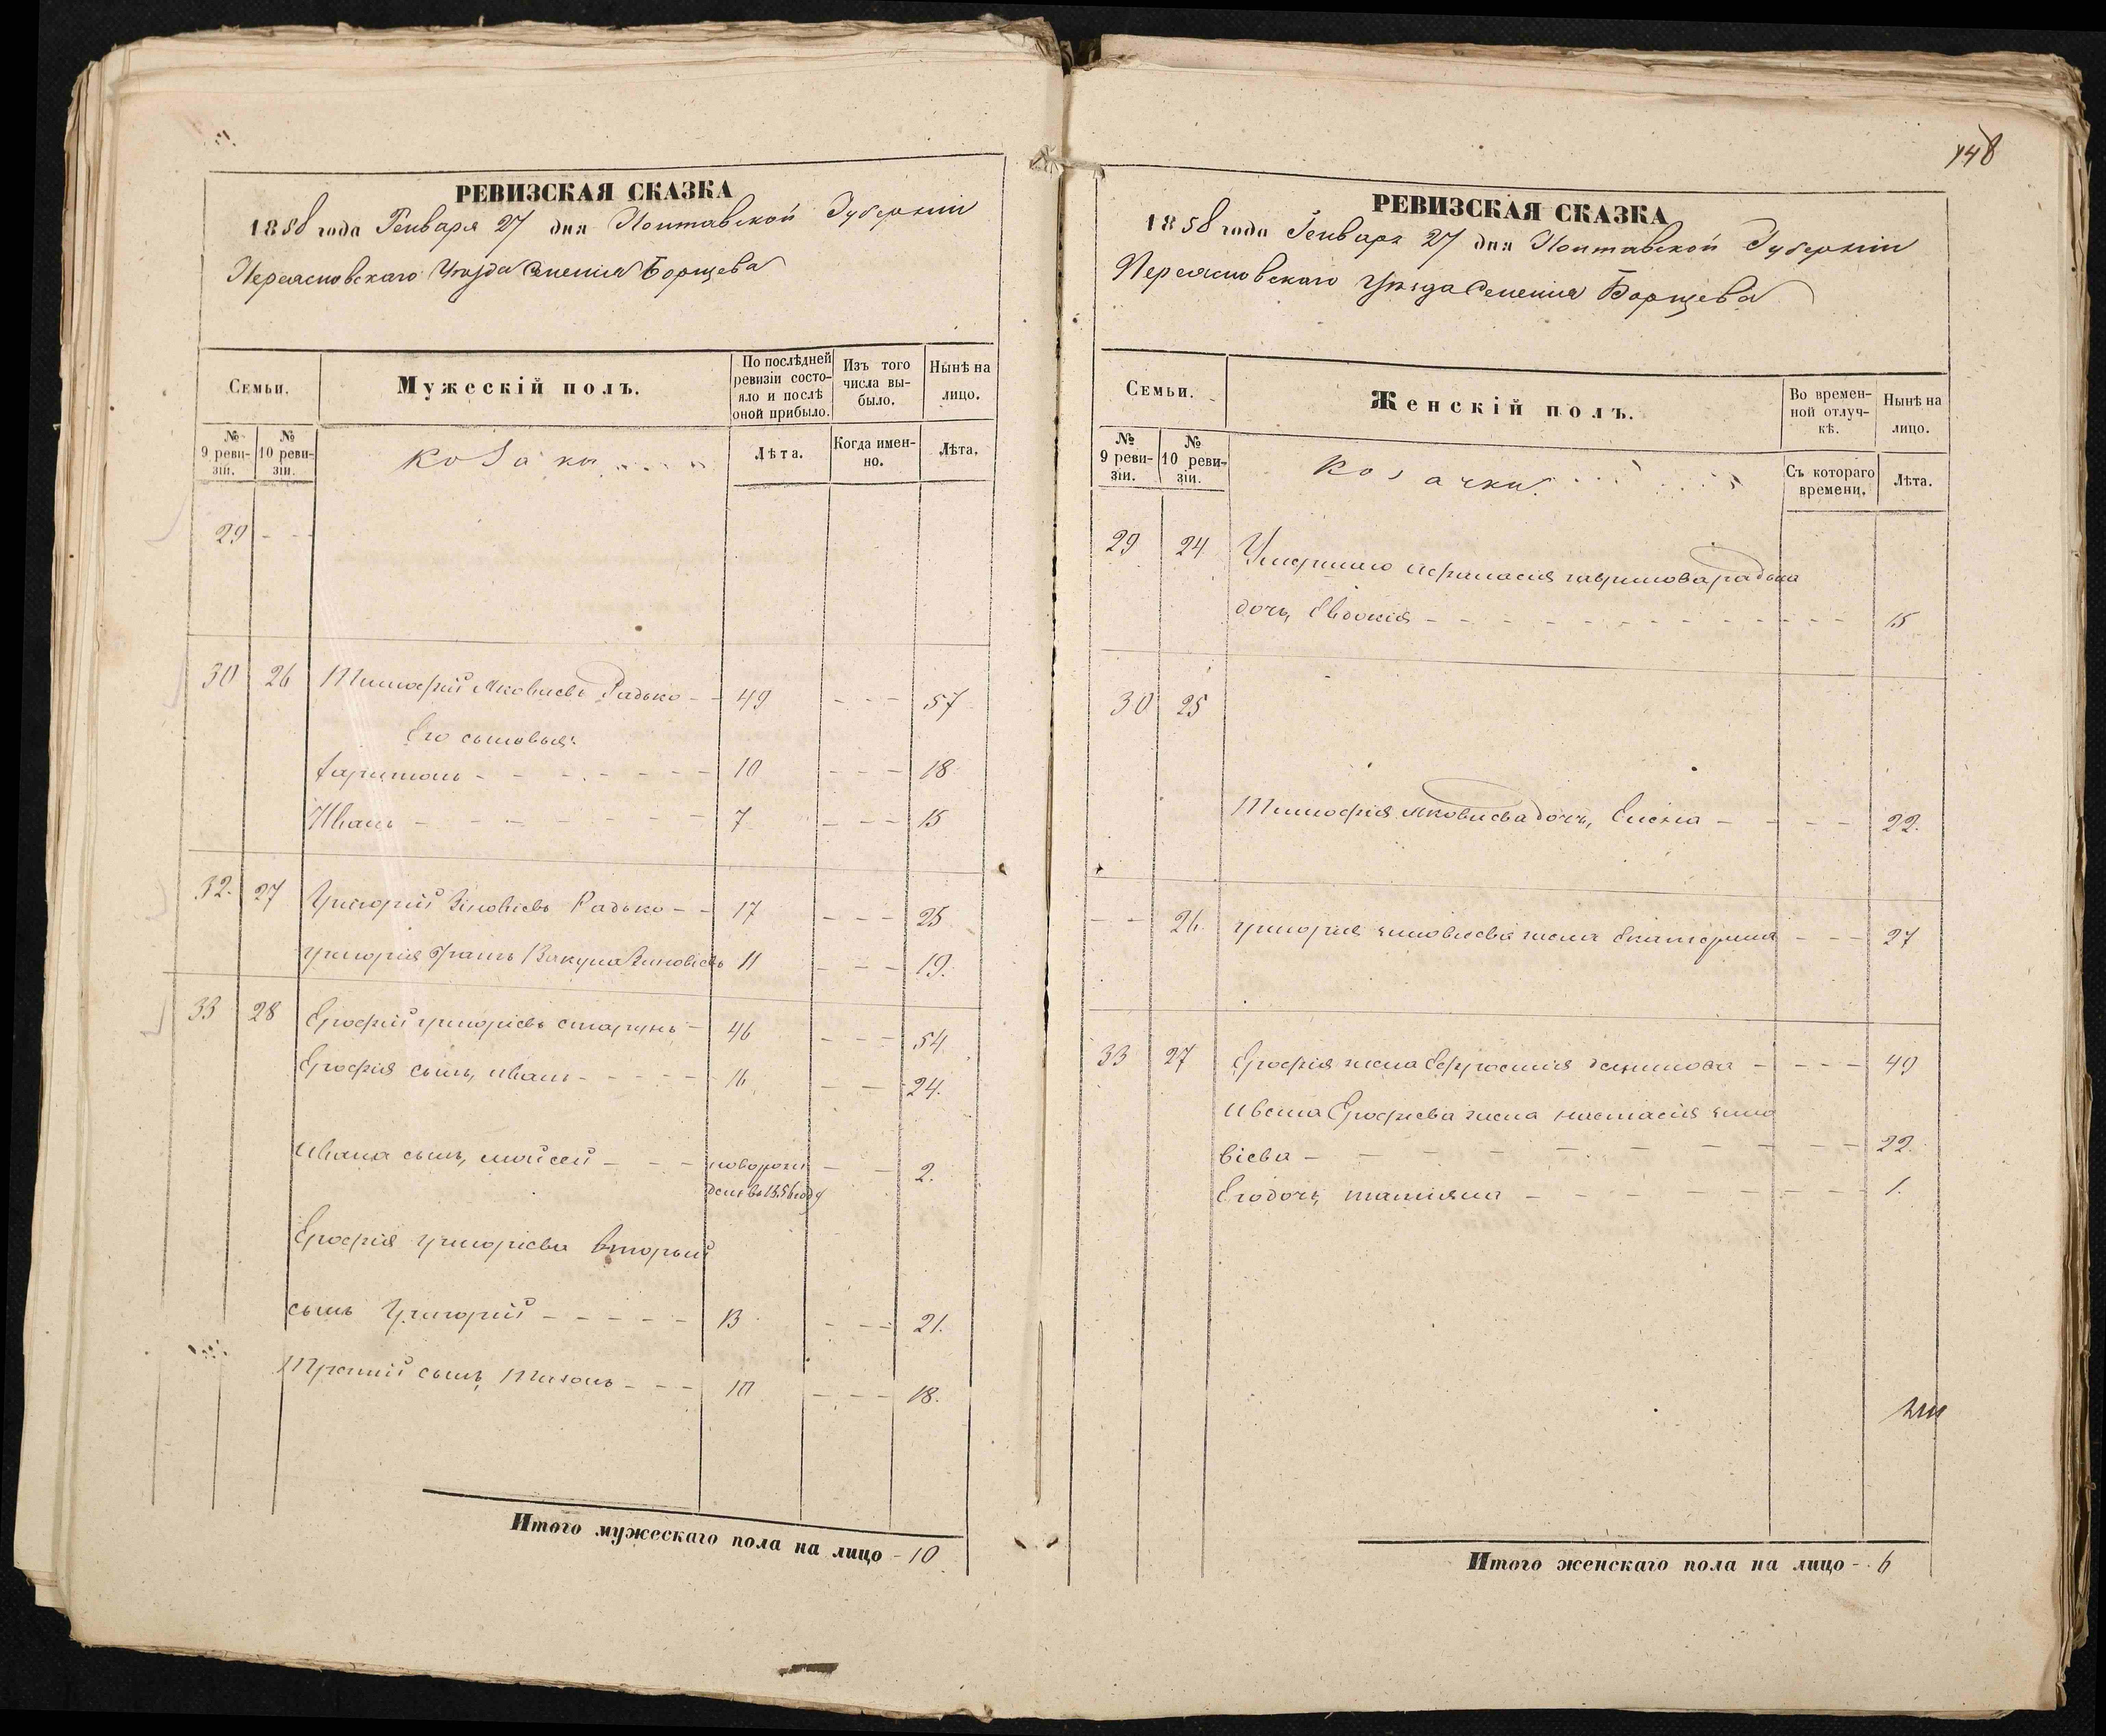 РЕВИЗСКАЯ СКАЗКА
1858 года Генваря 27 дня Полтавской Губерніи
Переясловскаго Уѣзда Селенія Борщева
Семьи.
Мужескій полъ.
По послѣдней ревизіи состояло и послѣ оной прибыло.
Изъ того числа выбыло.
Нынѣ на лицо.
№ 9 ревизіи.
№ 10 ревизіи.
Козаки
Лѣта.
Когда именно.
Лѣта.
29
30 26 Тимофей Яковлевъ Радько 49 57
Его сыновья:
Харитонъ 10 18
Иванъ 7 15
32. 27 Григорій Зіновіевъ Радько 17 25
Григорія братъ Вакула Зиновіевъ 11 19.
33 28 Ерофей Григоріевъ 46 54
Ерофія сынъ, Иванъ 16 24.
Ивана сынъ, Мойсей новорож 2.
денъ въ 1856 году
Ерофія Григоріева вторый
сынъ Григорій 13 21.
Третій сынъ, 10 18.
Итого мужескаго пола на лицо - 10
148
РЕВИЗСКАЯ СКАЗКА
1858 года Генваря 27 дня Полтавской Губерніи
Переясловскаго Уѣзда Селенія Борщева
Семьи.
Женскій полъ.
Во временной отлучкѣ.
Нынѣ на лицо.
№ 9 ревизіи.
№ 10 ревизіи.
Козачки.
Съ котораго времени.
Лѣта.
29 24 Умершаго Афанасія Гаврилова Радька
дочь, Евдокія 15
30 25
Тимофія Яковлева дочь, Елена 22.
26. Григорія Зиновіева жена Екатерина 27
33 27 Ерофія жена Ефросинія 49
Ивана Ерофіева жена Настасія Зино
віева 22.
Его дочь, Татіяна 1.
Итого женскаго пола на лицо - 6